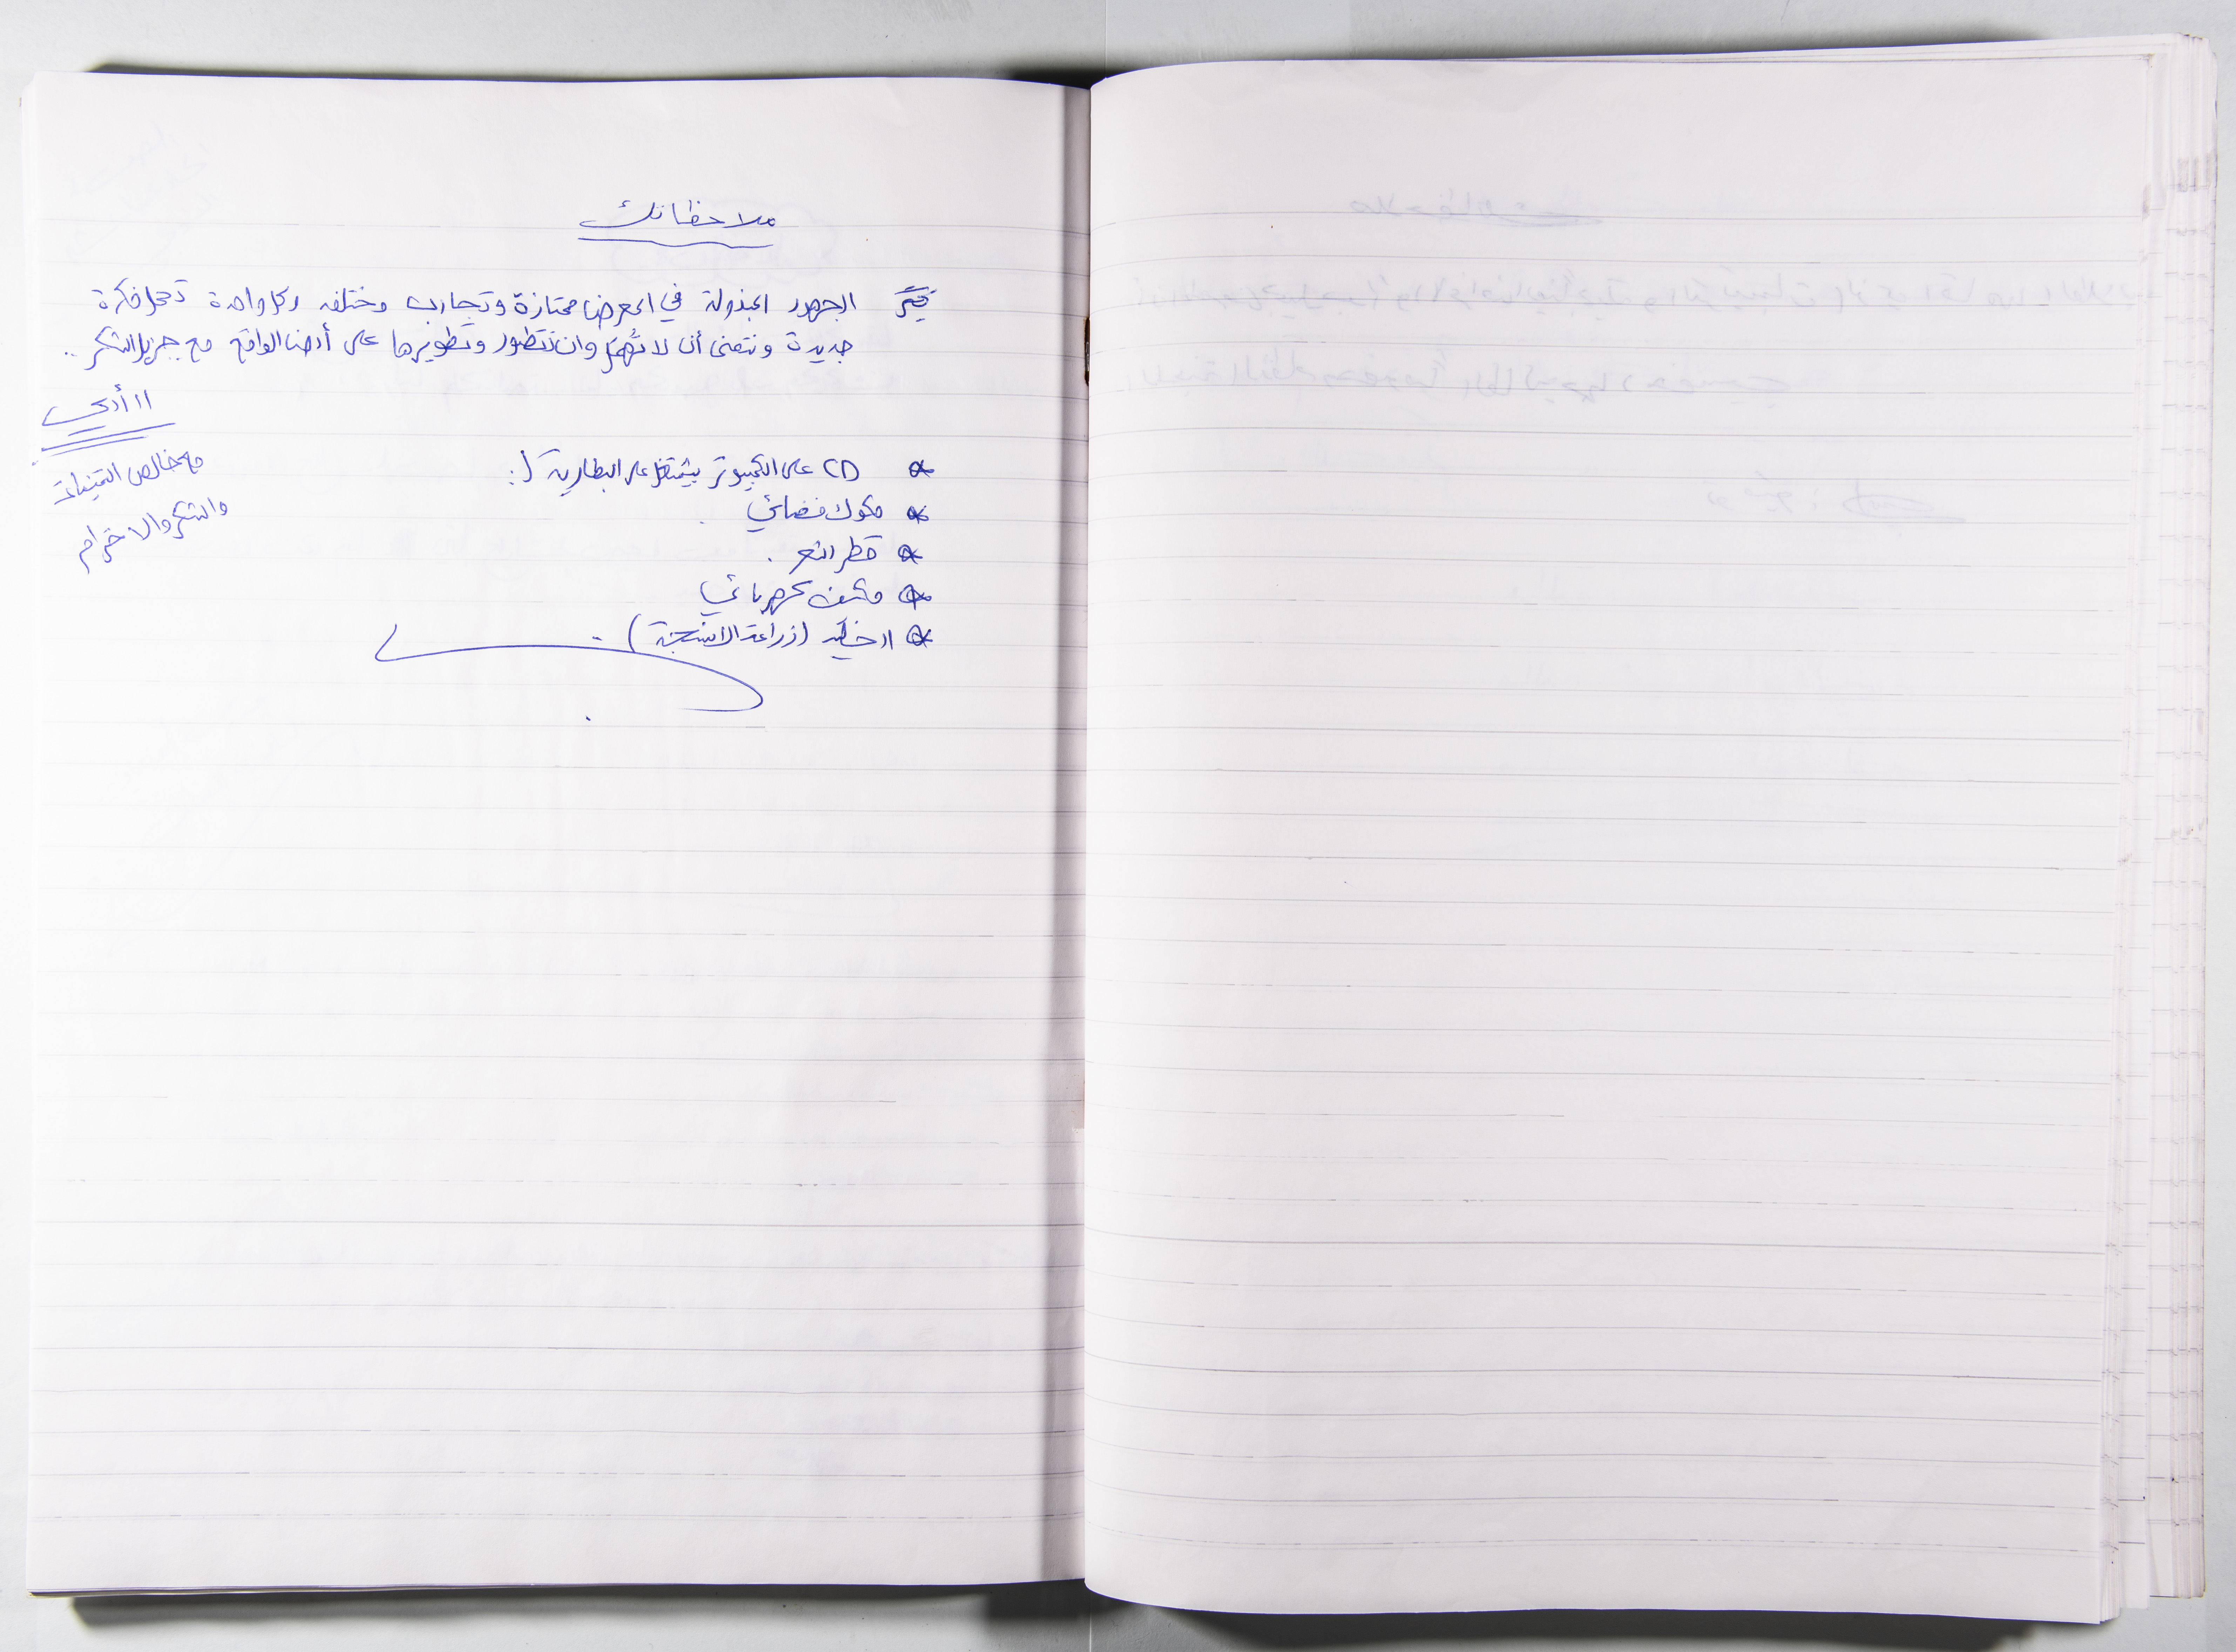 ملاحظاتك
تعتبر الجهود المبذولة في المعرض ممتازة وتجارب ومختلفه وكل واحدة تحمل فكرة
جديدة ونتمنى أن لا تُهمل وان تتطور وتطويرها على أرض الواقع مع جزيل الشكر ..
مع خالص التمنيات
والشكر والاحترام
* CD على الكمبيوتر يشتغل على البطارية ل :
* مكوك فضائي .
* قطر
* مكنف كهربائي
* (زراعة الانسجة) .